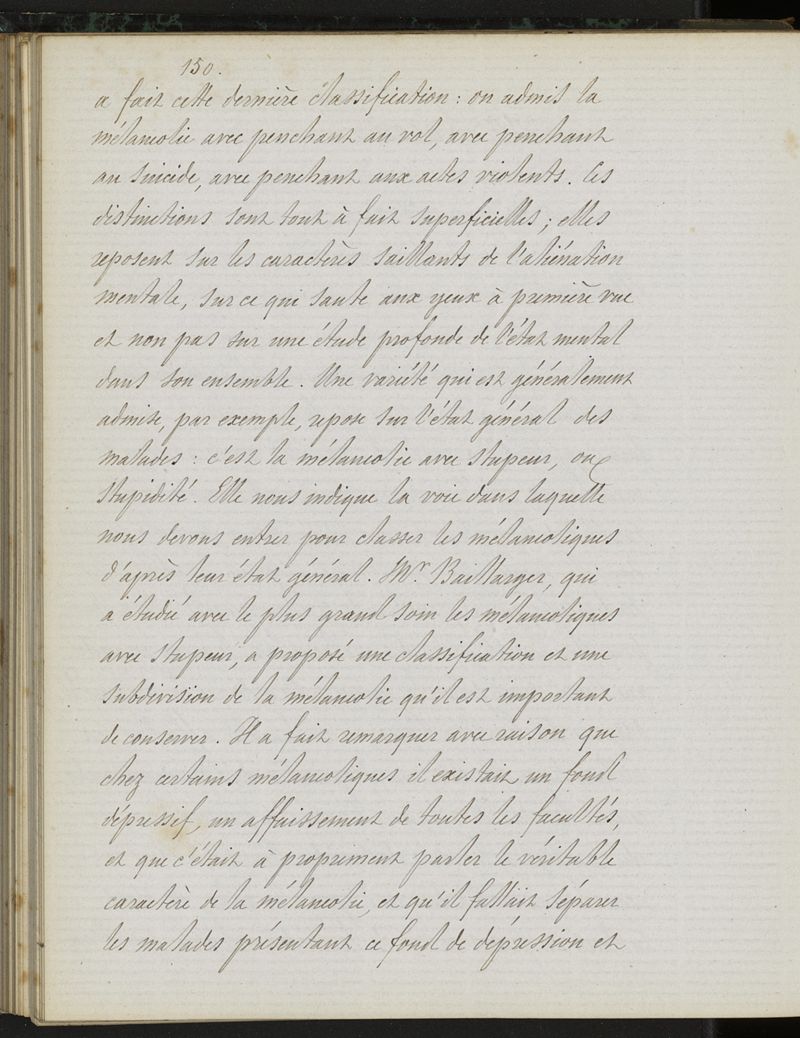 150.
a fait cette dernière classification : on admit la
mélancolie avec penchant au vol, avec penchant
au suicide, avec penchant aux actes violents. Ces
distinctions sont tout à fait superficielles ; elles
reposent sur les caractères saillants de l'aliénation
mentale, sur ce qui saute aux yeux à première vue
et non pas sur une étude profonde de l'état mental
dans son ensemble. Une variété qui est généralement
admise, par exemple, repose sur l'état général des
malades : c'est la mélancolie avec stupeur, ou
stupidité. Elle nous indique la voie dans laquelle
nous devons entrer pour classer les mélancoliques
d'après leur état général. Mr. Baillarger, qui
a étudié avec le plus grand soin les mélancoliques
avec stupeur, a proposé une classification et une
subdivision de la mélancolie qu'il est important
de conserver. Il a fait remarquer avec raison que
chez certains mélancoliques il existait un fond
dépressif, un affaissement de toutes les facultés,
et que c'était à proprement parler le véritable
caractère de la mélancolie, et qu'il fallait séparer
les malades présentant ce fond de dépression et